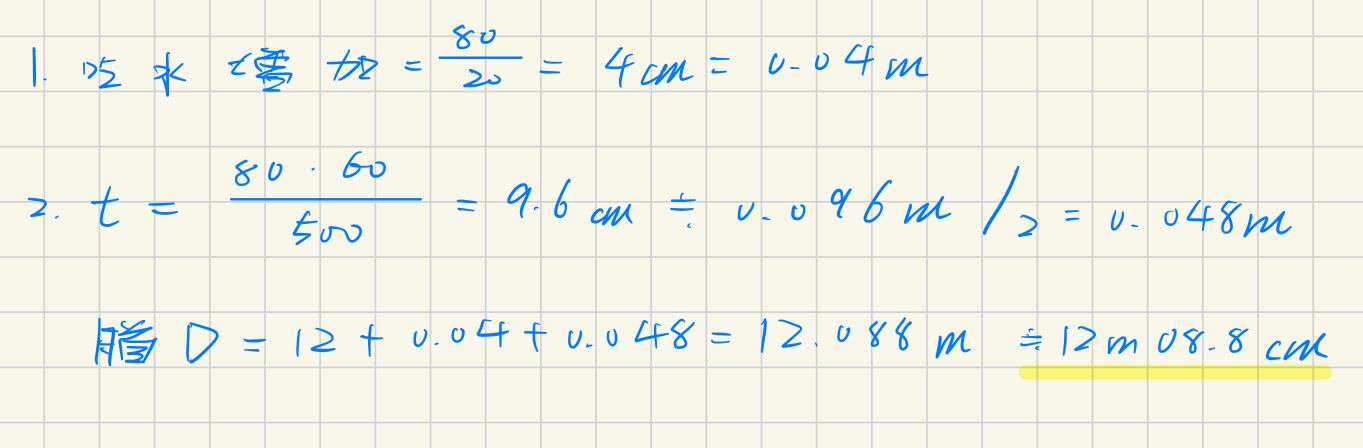 1. 吃水 増加 = 80/20 = 4cm = 0.04m
2. t = 80・60/500 = 9.6cm ≒ 0.096m /2 = 0.048m
D = 12 + 0.04 + 0.048 = 12.088m ≒ 12m 08.8cm